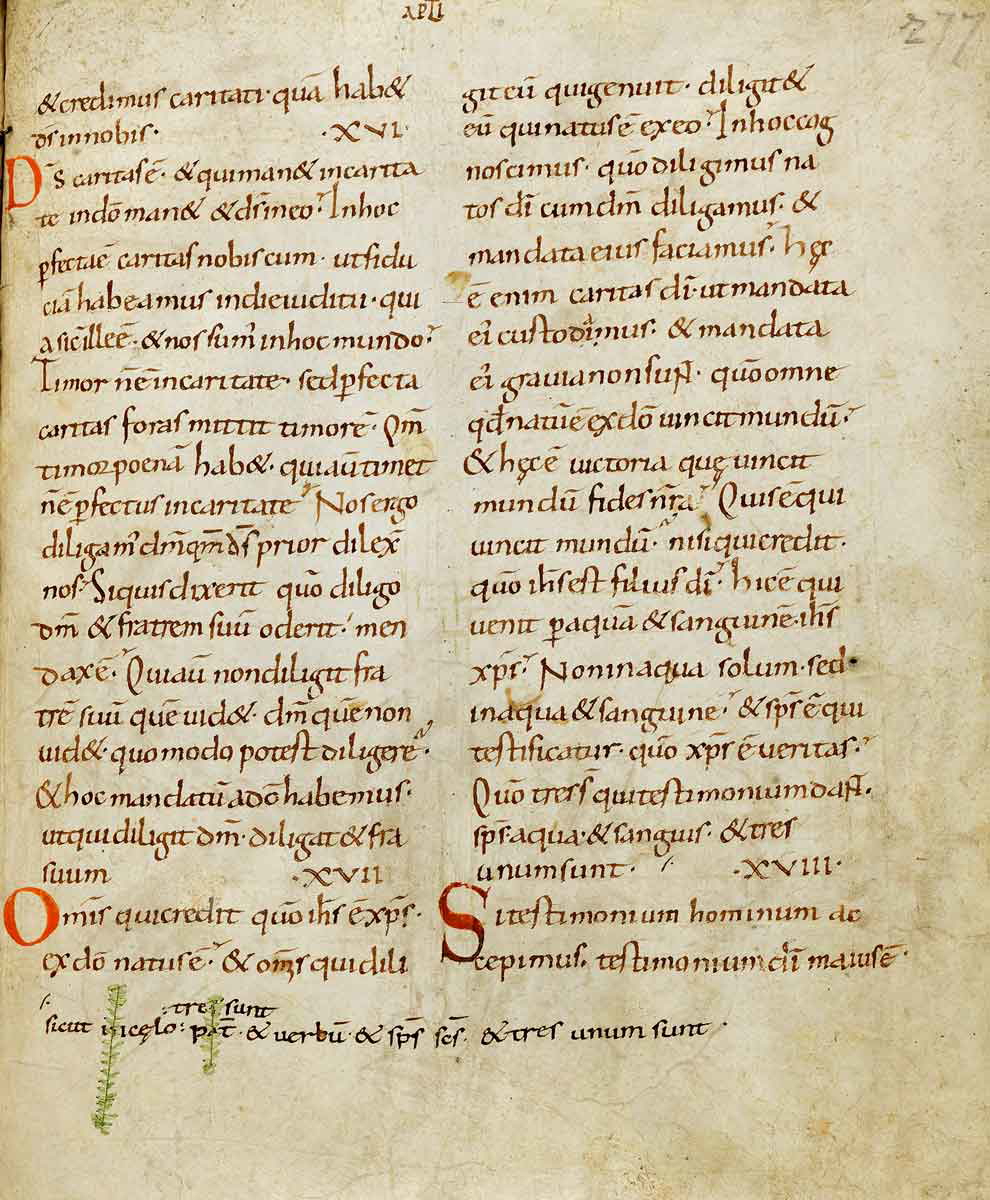 APLI
277
& credimus caritati· quā hab&
d̄s in nobis· ·XVI·
D̄s caritas ē· & qui man& in carita
te in dō man& & d̄s in eo· In hoc
ꝑfecta ē caritas nobiscum· ut fidu
ciā habeamus in die iuditii· qui
a sic̄ ille ē· & nos sum̄ in hoc mundo·
Timor n̄ ē in caritate· sed ꝑfecta
caritas foras mittit timorē· Qm̄
timor poenā hab&· qui aūt timet
n̄ ē ꝑfectus in caritate· Nos ergo
diligam̄ dm̄ qm̄ d̄s prior dilex̄
nos· Siquis dixerit quō diligo
dm̄ & fratrem suū oderit· men
dax ē· Qui aū non diligit fra
trē suū quē uid&· dm̄ quē non
uid&· quomodo potest diligere·
& hoc mandatū a dō habemus·
ut qui diligit dm̄· diligat & fra
suum ·XVII
Omīs qui credit quō ih̄s ē xp̄s·
ex dō natus ē· & om̄s qui dili
git eū qui genuit· diligit &
eū qui natus ē ex eo· In hoc cog
noscimus· quō diligimus na
tos dī cum dm̄ diligamus· &
mandata eius faciamus· hęc
ē enim caritas dī· ut mandata
ei' custodimus· & mandata
ei' grauia non sunt· quō omne
qđ natū ē ex dō uincit mundū·
& hęc ē uictoria quę uincit
mundū fides nr̄a· Quis ē qui
uincit mundū· nisi qui credit·
quō ih̄s est filius dī· hic ē qui
uenit ꝑ aquā & sanguinē· ih̄s
xp̄s· Non in aqua solum· sed
in aqua & sanguine· & sp̄s ē qui
testificatur· quō xp̄s ē ueritas·
Quō tres s̄ qui testimonium dant·
sp̄s· aqua· & sanguis· & tres
unum sunt· ·XVIII·
Si testimonium hominum ac
cepimus· testimonium dī maius ē·
tres sunt
sicut in cęlo· pat̄ & uerbū & sp̄s sc̄s· & tres unum sunt·